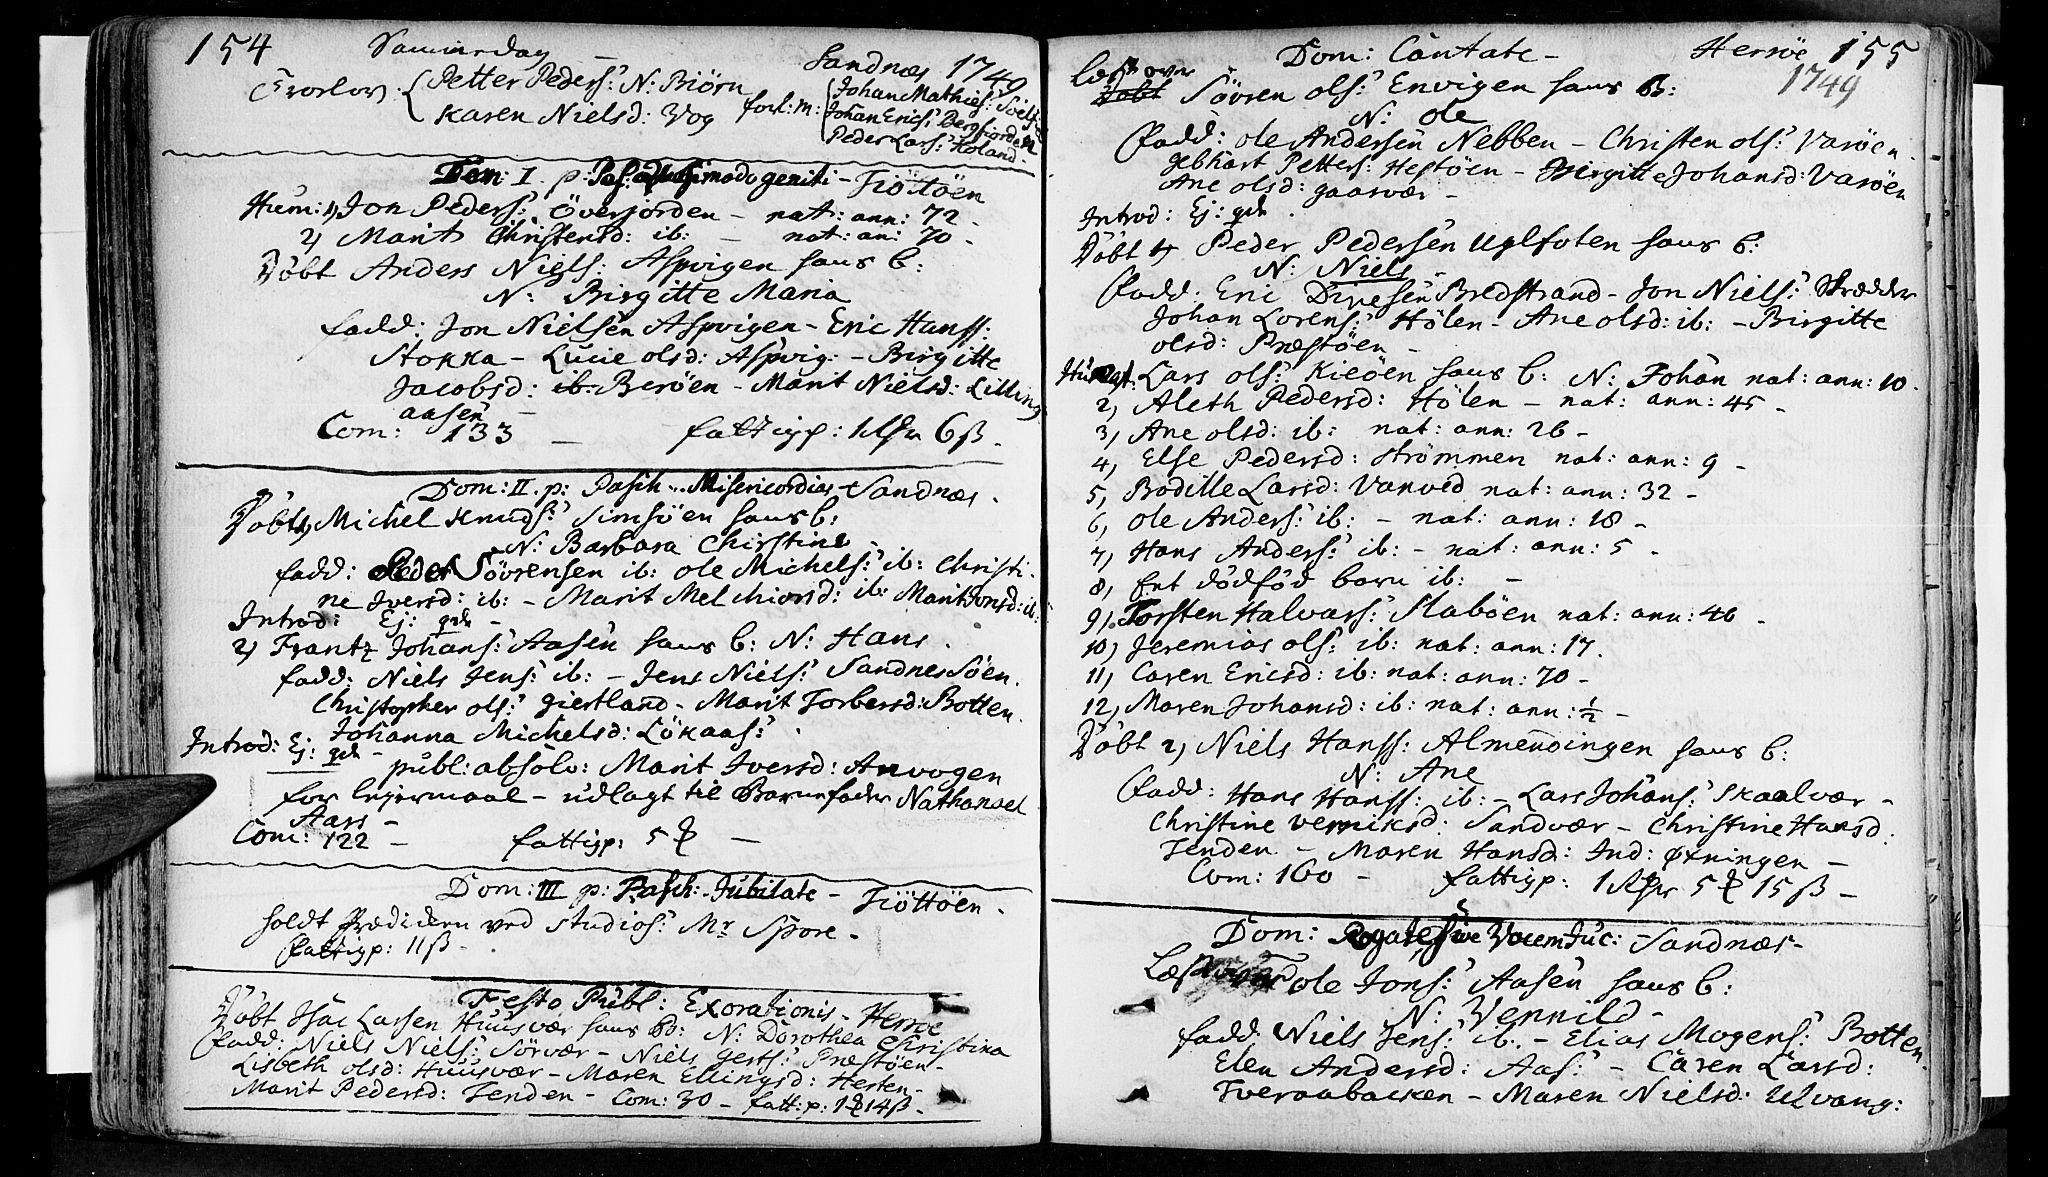 154 Sandnæs 1749
Trolov: Petter Peders: N: Biörn
Karen Nielsd: Vog forl: M: Johan Mathies:
Johan Erics: Bergfiorden
Peder Lars: Holand
Dom: I. p: Pas: Quasimodogeniti - Tiöttöen
Hum: 1, Jon Peders: Överjorden - nat: ann: 72 -
2, Marit Christensd: ib: - nat: an: 70 -
Döbt Anders Niels: Aspvigen hans b:
N: Birgitte Maria
fadd: Jon Nielsen Aspvigen - Eric Hanss:
Stokka - Lucie olsd: Aspvig: - Birgitte
Jacobsd: ib: Beröen - Marit Nielsd: Litting
aasen -
Com: 133 - fattigp: 1 6ß -
Dom: II. p: Pasch: Misericordias - Sandnæs -
Döbt 1, Michel Knuds: Simsöen hans b:
N: Barbara Chirstine -
fadd: Peder Sövrensen ib: ole Michels: ib: Christi-
ne Iversd: ib: - Marit Melchiorsd: ib: Marit Jonsd: ib:
Introd: Ej: -
2, Frantz Johans: Aasen hans b: N: Hans
fadd: Niels Jens: ib: - Jens Niels: Sandnes Söen.
Christopher ols: giertland - Marit Torbersd: Botten.
Johanna Michelsd: Lökaas: -
Introd: Ej: -
publ: absolv: Marit Iversd: Anvogen
for lejermaal - udlagt til Barnefader Nathanael
Aars -
Com: 122 - fattigp: 5 -
Dom: III p: Pasch: Jubilate - Tiöttöen -
holdt Prædiken ved Studios: Mr Spore -
fattigp: 11ß -
Festo Publ: Exorationis - Herröe
Döbt Isac Larsen Huusvær hans b: N: Dorothea Christina
fadd: Niels Niels: Sörvær - Niels Jerts: Præstöen -
Lisbeth olsd: Huusvær - Maren Ellingsd: Hesten -
Marit Pedersd: Tenden - Com: 30 - fatt: p: 1 14ß -
Dom: Cantate - Herröe 155
1749
Læst over
Döbt Sövren ols: Envigen hans B:
N: ole
fadd: ole Andersen Nebben - Christen ols: Varöen -
gebhart Petters: Hestöen - Birgitte Johansd: Varöen
Ane olsd: gaasvær -
Introd: Ej: .
Döbt 1, Peder Pedersen Uglfoten hans b:
N: Niels
fadd: Eric Bredstrand - Jon Niels: Skrædder
Johan Lorens: Hölen - Ane olsd: ib: - Birgitte
olsd: Præstöen -
Lars ols: Kieöen hans b: N: Johan nat: ann: 10.
2, Aleth Pedersd: Hölen - nat: ann: 45 -
3, Ane olsd: ib: nat: ann: 26 -
4, Else Pedersd: Strömmen nat: ann: 9 -
5, Bodille Larsd: Vanved nat: ann: 32 -
6, ole Anders: ib: - nat: ann: 18 -
7, Hans Anders: ib: - nat: ann: 5 -
8, Et dödföd barn ib: -
9, Torsten Halvars: Slaböen nat: ann: 46 -
10, Jeremias ols: ib: nat: ann: 17.
11, Caren Ericsd: ib: nat: ann: 70 -
12, Maren Johansd: ib: nat: ann: ½ -
Döbt 2, Niels Hanss: Almenningen hans b:
N: Ane
fadd: Hans Hanss: ib: - Lars Johans: Skaalvær -
Christine Verniksd: Sandvær - Christine Hansd:
Tenden - Maren Hansd: Ind: Öxningen -
Com: 160 - fattigp: 1 5 15ß -
Dom: Rogate sive Vocem Juc: - Sandnæs -
Læst over ole Jons: Aasen hans b:
N: Vennild -
fadd: Niels Jens: ib: - Elias Mogens: Botten.
Elen Andersd: Aas: - Caren Larsd:
Tveraabacken - Maren Nielsd: Ulvang: